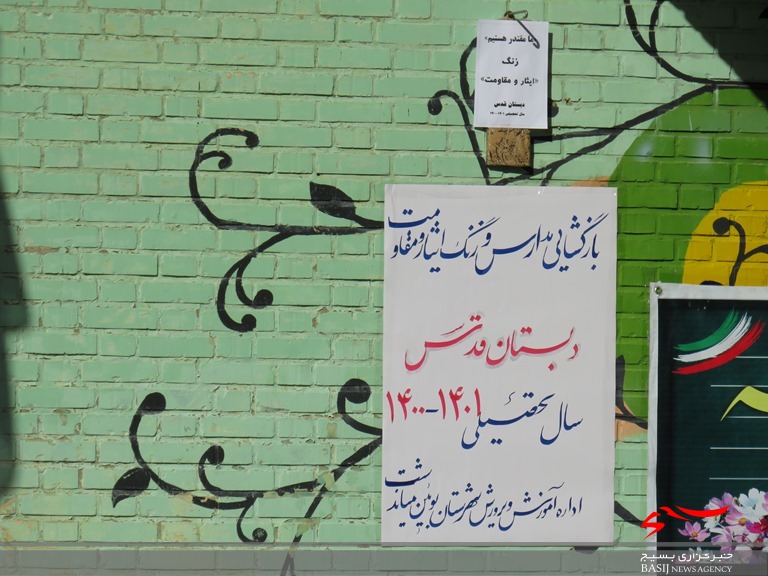 «ما مقتدر هستیم»
زنگ
«ایثار و مقاومت»
دبستان قدس
سال تحصیلی ۱۴۰۱-۱۴۰۰
بازگشایی مدارس و زنگ ایثار و مقاومت
دبستان قدس
سال تحصیلی ۱۴۰۱-۱۴۰۰
اداره آموزش و پرورش شهرستان بوئین میاندشت
بسیج
خبرگزاری بسیج
BASIJ NEWS AGENCY